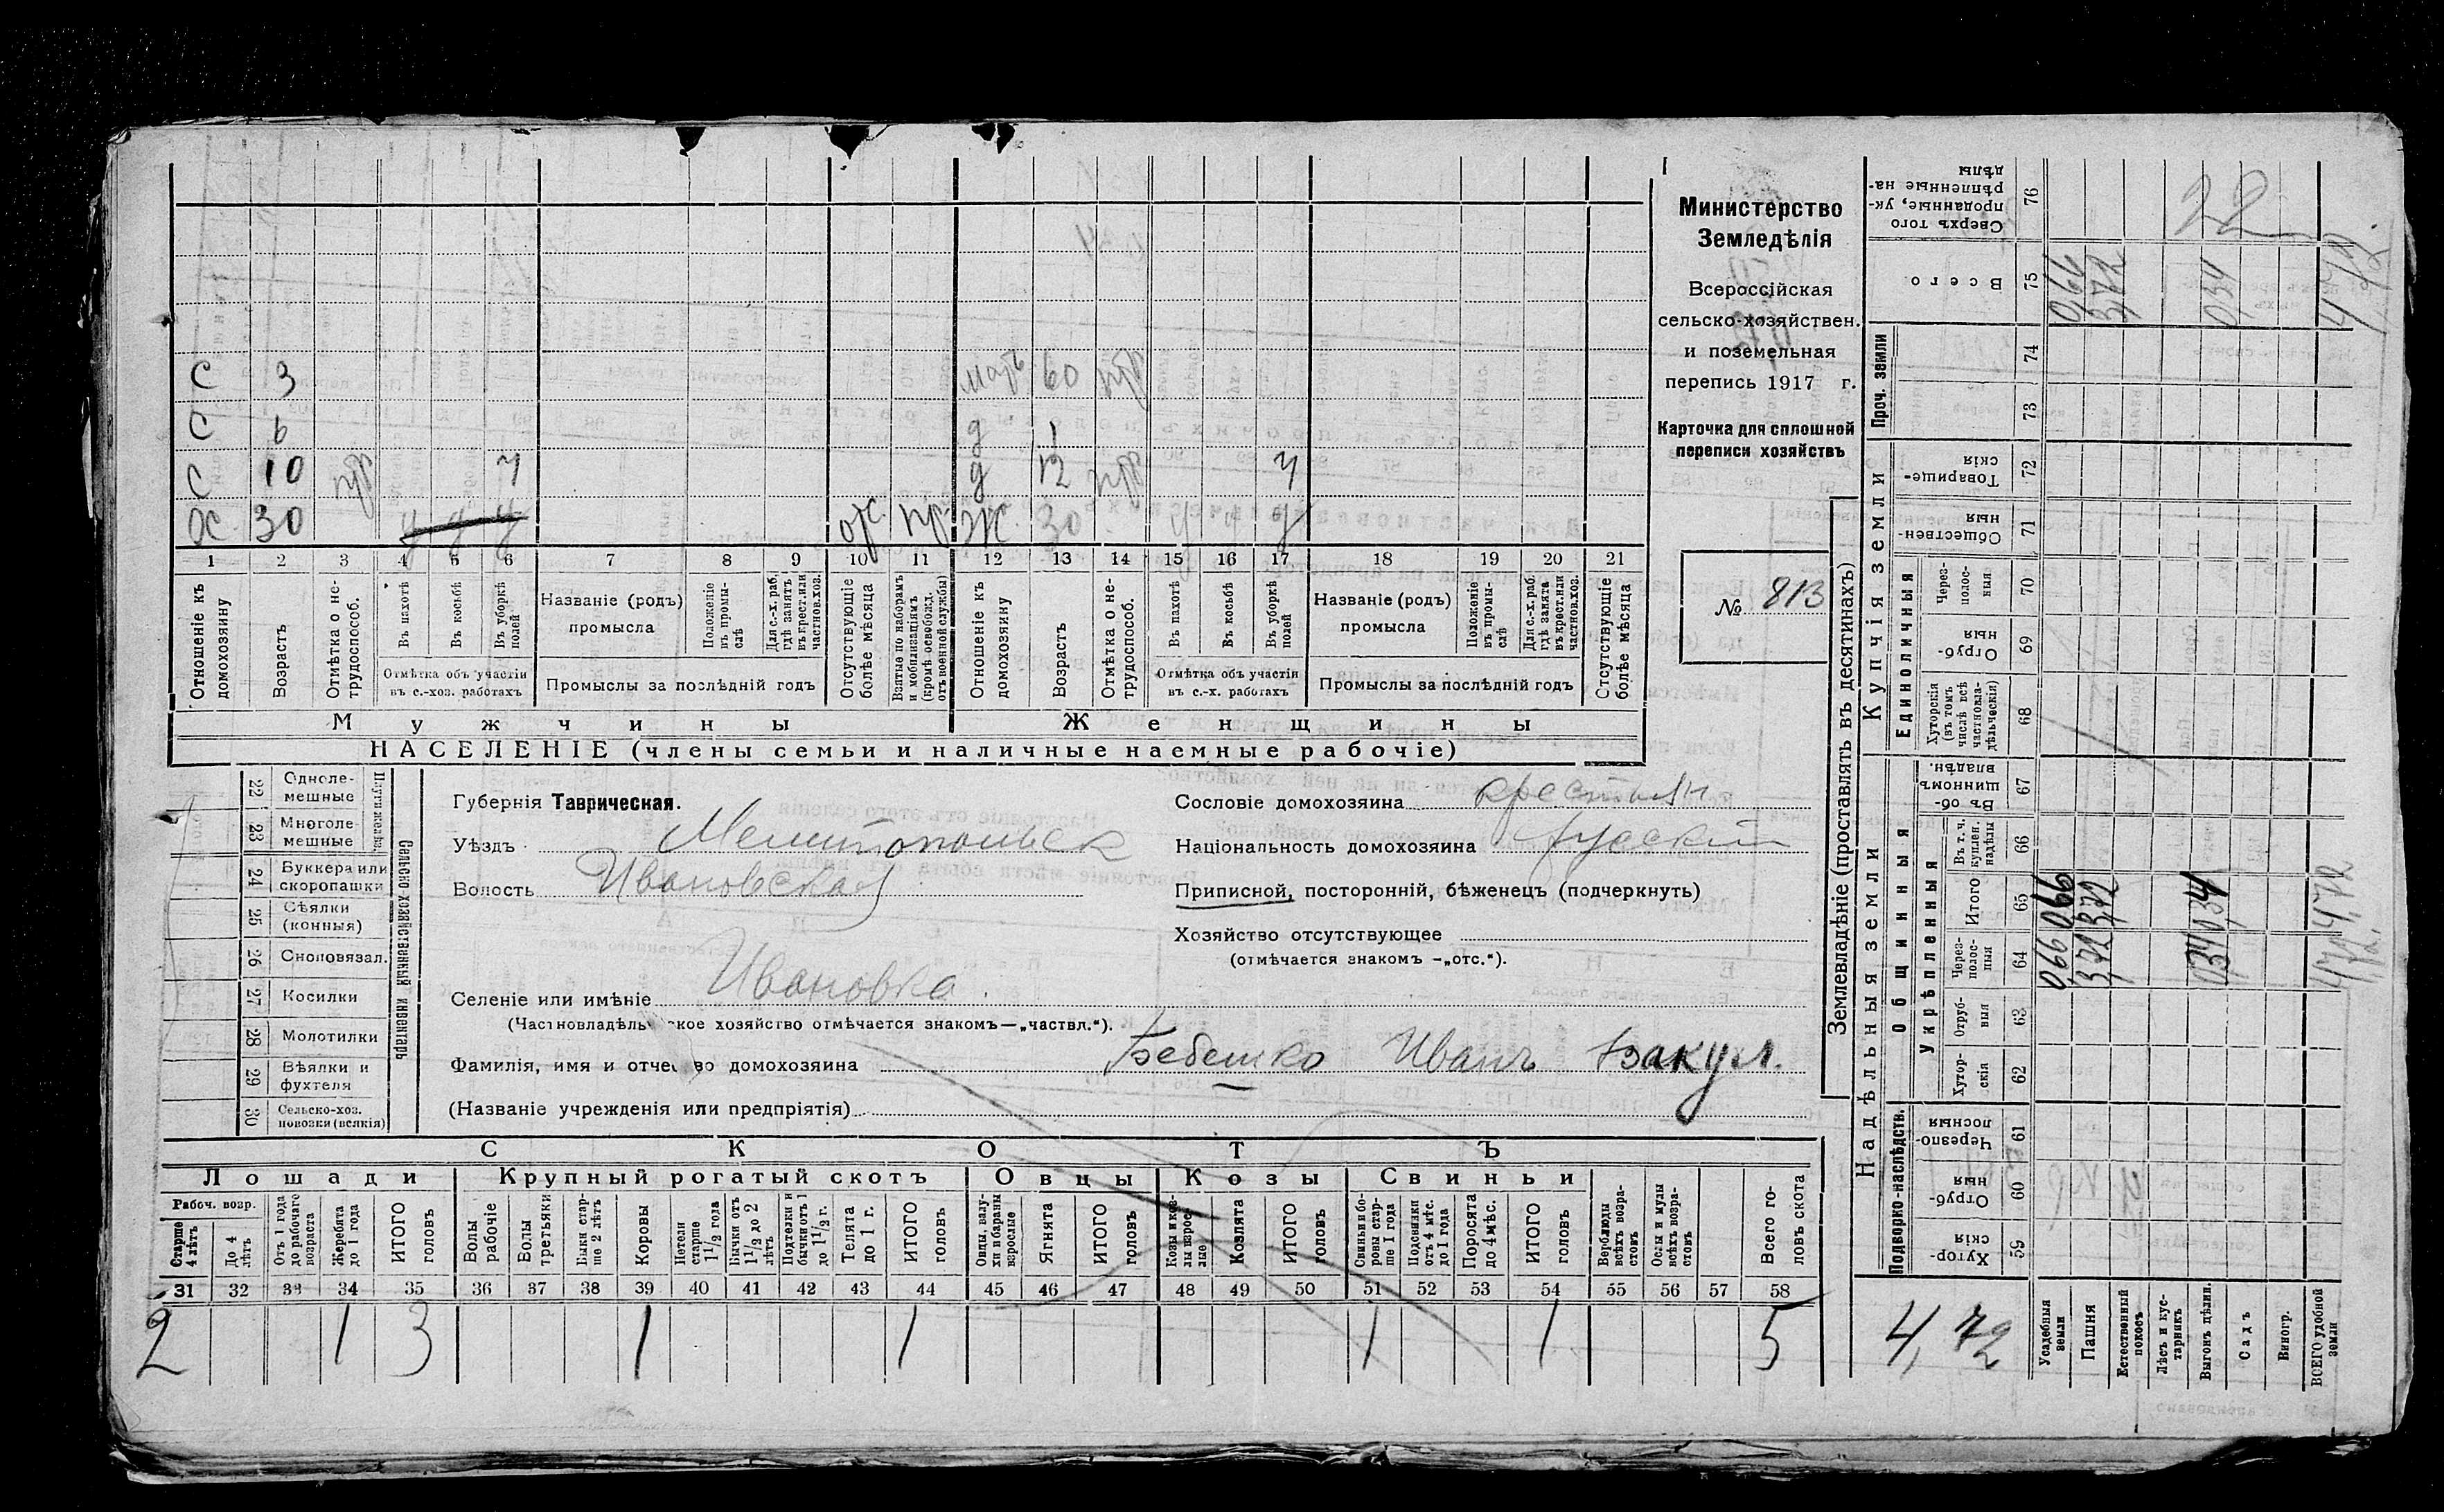 С 3 мать 60 нтр
С 6 д 1
С 10 нтр ч д 12 нтр ч
Х 30 отс. пр. Ж. 30
1 2 3 4 5 6 7 8 9 10 11 12 13 14 15 16 17 18 19 20 21
Отношеніе къ домохозяину
Возрастъ
Отмѣтка о не-трудоспособ.
Въ пахотѣ
Въ косьбѣ
Въ уборкѣ полей
Отмѣтка объ участіи въ с.-хоз. работахъ
Названіе (родъ) промысла
Положеніе въ промы-слѣ
Для с.-х. раб. гдѣ занятъ въ крест. или частнов. хоз.
Промыслы за послѣдній годъ
Отсутствующіе болѣе мѣсяца
Взятые по наборамъ и мобилизаціямъ (кромѣ освобожд. отъ военной службы)
Отношеніе къ домохозяину
Возрастъ
Отмѣтка о не-трудоспособ.
Въ пахотѣ
Въ косьбѣ
Въ уборкѣ полей
Отмѣтка объ участіи въ с.-х. работахъ
Названіе (родъ) промысла
Положеніе въ промы-слѣ
Для с.-х. раб. гдѣ занята въ крест. или частнов. хоз.
Промыслы за послѣдній годъ
Отсутствующіе болѣе мѣсяца
Мужчины Женщины
НАСЕЛЕНІЕ (члены семьи и наличные наемные рабочіе)
Министерство
Земледѣлія
Всероссійская
сельско-хозяйствен.
и поземельная
перепись 1917 г.
Карточка для сплошной
переписи хозяйствъ
№ 813
Сельско хозяйственный инвентарь
22 Одноле-мешные
23 Многоле-мешные
24 Буккера или скоропашки
25 Сѣялки (конныя)
26 Сноповязал.
27 Косилки
28 Молотилки
29 Вѣялки и фухтеля
30 Сельско-хоз. повозки (всякія)
Губернія Таврическая.
Уѣздъ Мелитопольск
Волость Ивановская
Селеніе или имѣніе Ивановка.
(Частновладѣль кое хозяйство отмѣчается знакомъ—„частвл.“).
Фамилія, имя и отчес во домохозяина Бебешко Иванъ Вакул.
(Названіе учрежденія или предпріятія)
Сословіе домохозяина крестьян
Національность домохозяина русскій
Приписной, посторонній, бѣженецъ (подчеркнуть)
Хозяйство отсутствующее
(отмѣчается знакомъ —„отс.“).
СКОТЪ
Лошади Крупный рогатый скотъ Овцы Козы Свиньи
Рабоч. возр.
Старше 4 лѣтъ
До 4 лѣтъ
Отъ 1 года до рабочаго возраста
Жеребята до 1 года
ИТОГО головъ
Волы рабочіе
Волы третьяки
Быки стар-ше 2 лѣтъ
Коровы
Нетели старше 1 1/2 года
Бычки отъ 1 1/2 до 2 лѣтъ
Подтелки и бычки отъ 1 до 1 1/2 г.
Телята до 1 г.
ИТОГО головъ
Овцы, валу-хи и бараны взрослые
Ягнята
ИТОГО головъ
Козы и коз-лы взрос-лые
Козлята
ИТОГО головъ
Свиньи и бо-ровы стар-ше 1 года
Подсвинки отъ 4 мѣс. до 1 года
Поросята до 4 мѣс.
ИТОГО головъ
Верблюды всѣхъ возра-стовъ
Ослы и мулы всѣхъ возра-стовъ
Всего го-ловъ скота
31 32 33 34 35 36 37 38 39 40 41 42 43 44 45 46 47 48 49 50 51 52 53 54 55 56 57 58
2 1 3 1 1 1 1 5
Землевладѣніе (проставлять въ десятинахъ)
Купчія земли
Надѣльныя земли
Сверхъ того проданные, ук-рѣпленные на-дѣлы 76 22
Всего 75 0,66 3,72 0,34 4,72
Проч. земли 74
73
Товарище-скія 72
Обществен-ныя 71
Единоличныя
Через-полос-ныя 70
Отруб-ныя 69
Хуторскія (въ томъ числѣ всѣ частновла-дѣльческія) 68
Общинныя
Въ об-щинномъ владѣн. 67
Укрѣпленныя
Въ т. ч. куплен. надѣлы 66
Итого 65 066 3,72 0,34 4,72
Через-полос-ныя 64 066 3,72 034 4,72
Отруб-ныя 63
Хутор-скія 62
Подворно-наслѣдств.
Черезпо-лосныя 61
Отруб-ныя 60
Хутор-скія 59
4,72
Усадебныя земли
Пашня
Естественный покосъ
Лѣсъ и кус-тарникъ
Выгонъ дѣлин.
Садъ
Виногр.
ВСЕГО удобной земли